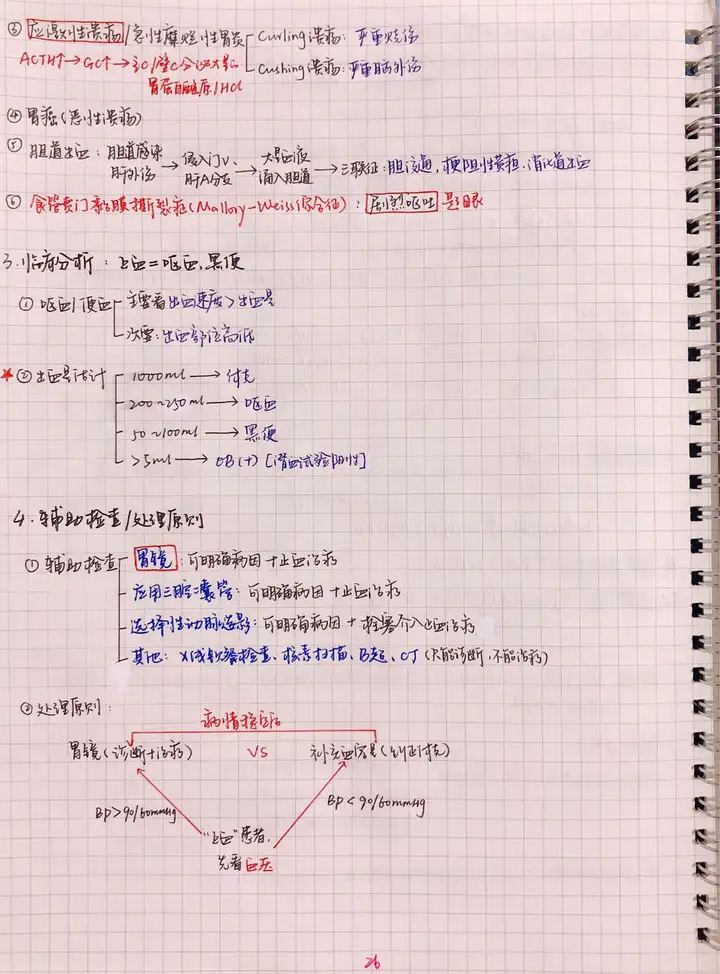 ③ 应激性溃疡/急性糜烂性胃炎 Curling溃疡: 严重烧伤
ACTH↑→GC↑→主C/壁C分泌大量 Cushing溃疡: 严重脑外伤
胃蛋白酶原/HCl
④ 胃癌(恶性溃疡)
⑤ 胆道出血: 胆道感染 肝外伤 → 侵入门V、肝A分支 → 大量血液涌入胆道 → 三联征: 胆绞痛, 梗阻性黄疸, 消化道出血
⑥ 食管贲门黏膜撕裂症(Mallory-Weiss综合征): 剧烈呕吐是题眼
3. 临床分析: 上血=呕血、黑便
① 呕血/便血 主要看出血速度>出血量
次要: 出血部位高低
★② 出血量估计 1000ml → 休克
200~250ml → 呕血
50~100ml → 黑便
>5ml → OB(+) [潜血试验阳性]
4. 辅助检查/处理原则
① 辅助检查 胃镜: 可明确病因+止血治疗
应用三腔二囊管: 可明确病因+止血治疗
选择性动脉造影: 可明确病因+栓塞介入止血治疗
其他: X线钡餐检查、核素扫描、B超、CT(只能诊断,不能治疗)
② 处理原则:
病情稳定后
胃镜(诊断+治疗) VS 补充血容量(纠正休克)
Bp>90/60mmHg Bp<90/60mmHg
"上血"患者,
先看血压
26